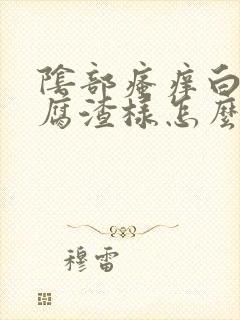 陰部瘙痒白
腐渣樣怎麽
穆雷